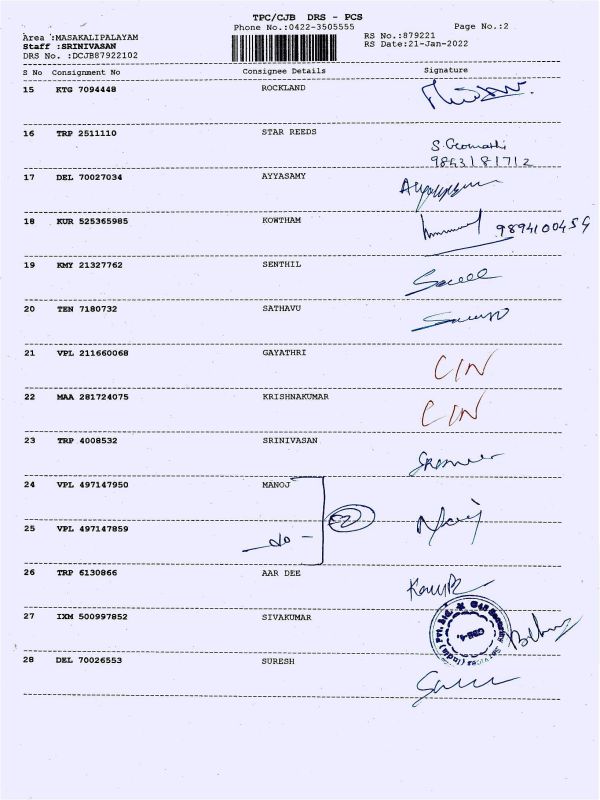 TPC/CJB DRS - PCS
Phone No.:0422-3505555 Page No.:2
Area :MASAKALIPALAYAM RS No.:879221
Staff :SRINIVASAN RS Date:21-Jan-2022
DRS No. :DCJB87922102
S No Consignment No Consignee Details Signature
15 KTG 7094448 ROCKLAND
16 TRP 2511110 STAR REEDS
S. Geomathi
9843181712
17 DEL 70027034 AYYASAMY
18 KUR 525365985 KOWTHAM
9894100454
19 KMY 21327762 SENTHIL
20 TEN 7180732 SATHAVU
21 VPL 211660068 GAYATHRI
C/N
22 MAA 281724075 KRISHNAKUMAR
C/N
23 TRP 4008532 SRINIVASAN
24 VPL 497147950 MANOJ
25 VPL 497147859
-do-
26 TRP 6130866 AAR DEE
27 IXM 500997852 SIVAKUMAR
G4S Security Services (India) Pvt. Ltd.
28 DEL 70026553 SURESH